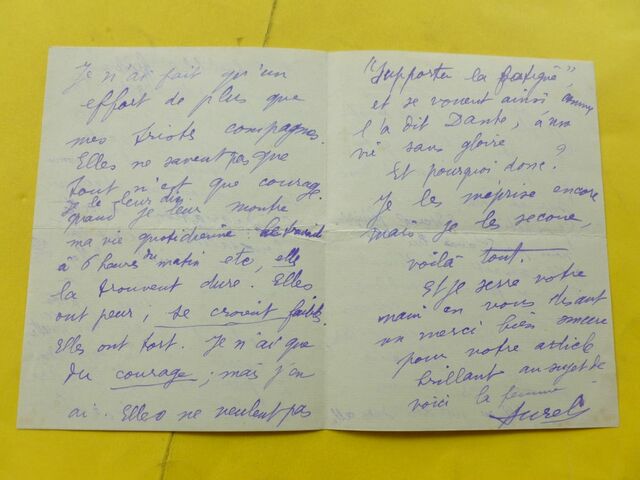 Je n'ai fait qu'un
effort de plus que
mes tristes compagnes.
Elles ne savent pas que
tout n'est que courage.
Je le leur dis
quand je leur montre
ma vie quotidienne :
à 6 heures du matin etc, elles
la trouvent dure. Elles
ont peur, se croient faibles.
Elles ont tort. Je n'ai que
du courage ; mais j'en
ai. Elles ne veulent pas
"supporter la fatigue",
et se vouent ainsi, comme
l'a dit Dante, à une
vie sans gloire
Et pourquoi donc ?
Je les méprise encore
mais je les secoue,
voilà tout.
Et je serre votre
main en vous disant
un merci bien sincère
pour votre article
brillant au sujet de
voici la femme
Aurel